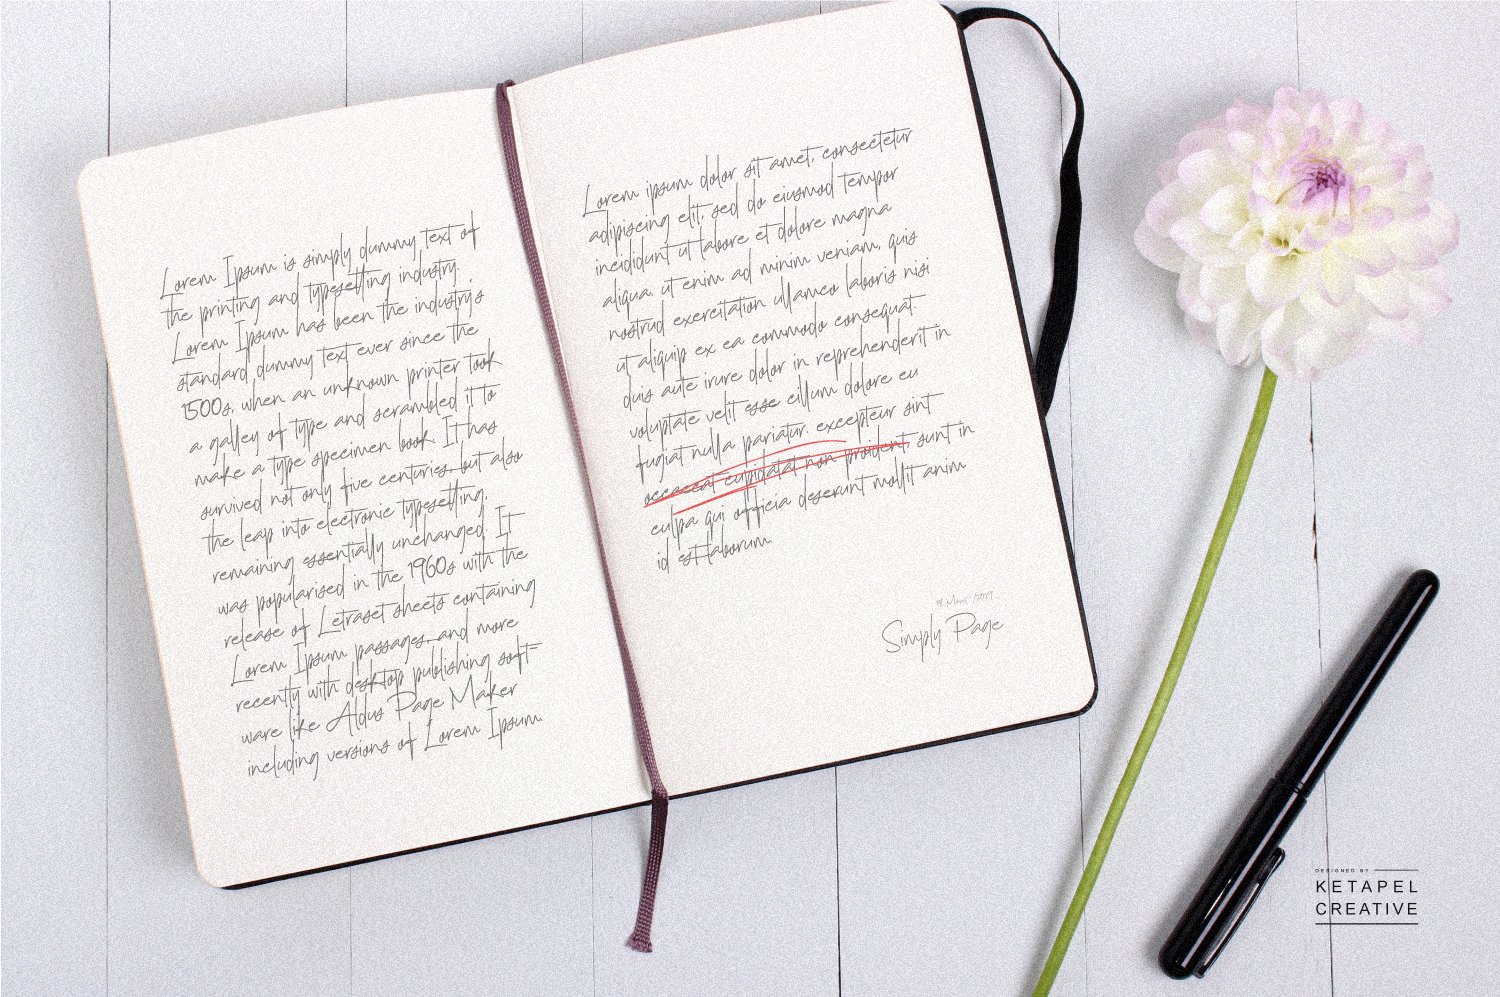 Lorem Ipsum is simply dummy text of
the printing and typesetting industry.
Lorem Ipsum has been the industry's
standard dummy text ever since the
1500s, when an unknown printer took
a galley of type and scrambled it to
make a type specimen book. It has
survived not only five centuries, but also
the leap into electronic typesetting,
remaining essentially unchanged. It
was popularised in the 1960s with the
release of Letraset sheets containing
Lorem Ipsum passages, and more
recently with desktop publishing soft-
ware like Aldus Page Maker
including versions of Lorem Ipsum.
Lorem ipsum dolor sit amet, consectetur
adipiscing elit, sed do eiusmod tempor
incididunt ut labore et dolore magna
aliqua. ut enim ad minim veniam, quis
nostrud exercitation ullamco laboris nisi
ut aliquip ex ea commodo consequat.
duis aute irure dolor in reprehenderit in
voluptate velit esse cillum dolore eu
fugiat nulla pariatur. excepteur sint
occaecat cupidatat non proident, sunt in
culpa qui officia deserunt mollit anim
id est laborum.
Simply Page
DESIGNED BY
KETAPEL
CREATIVE